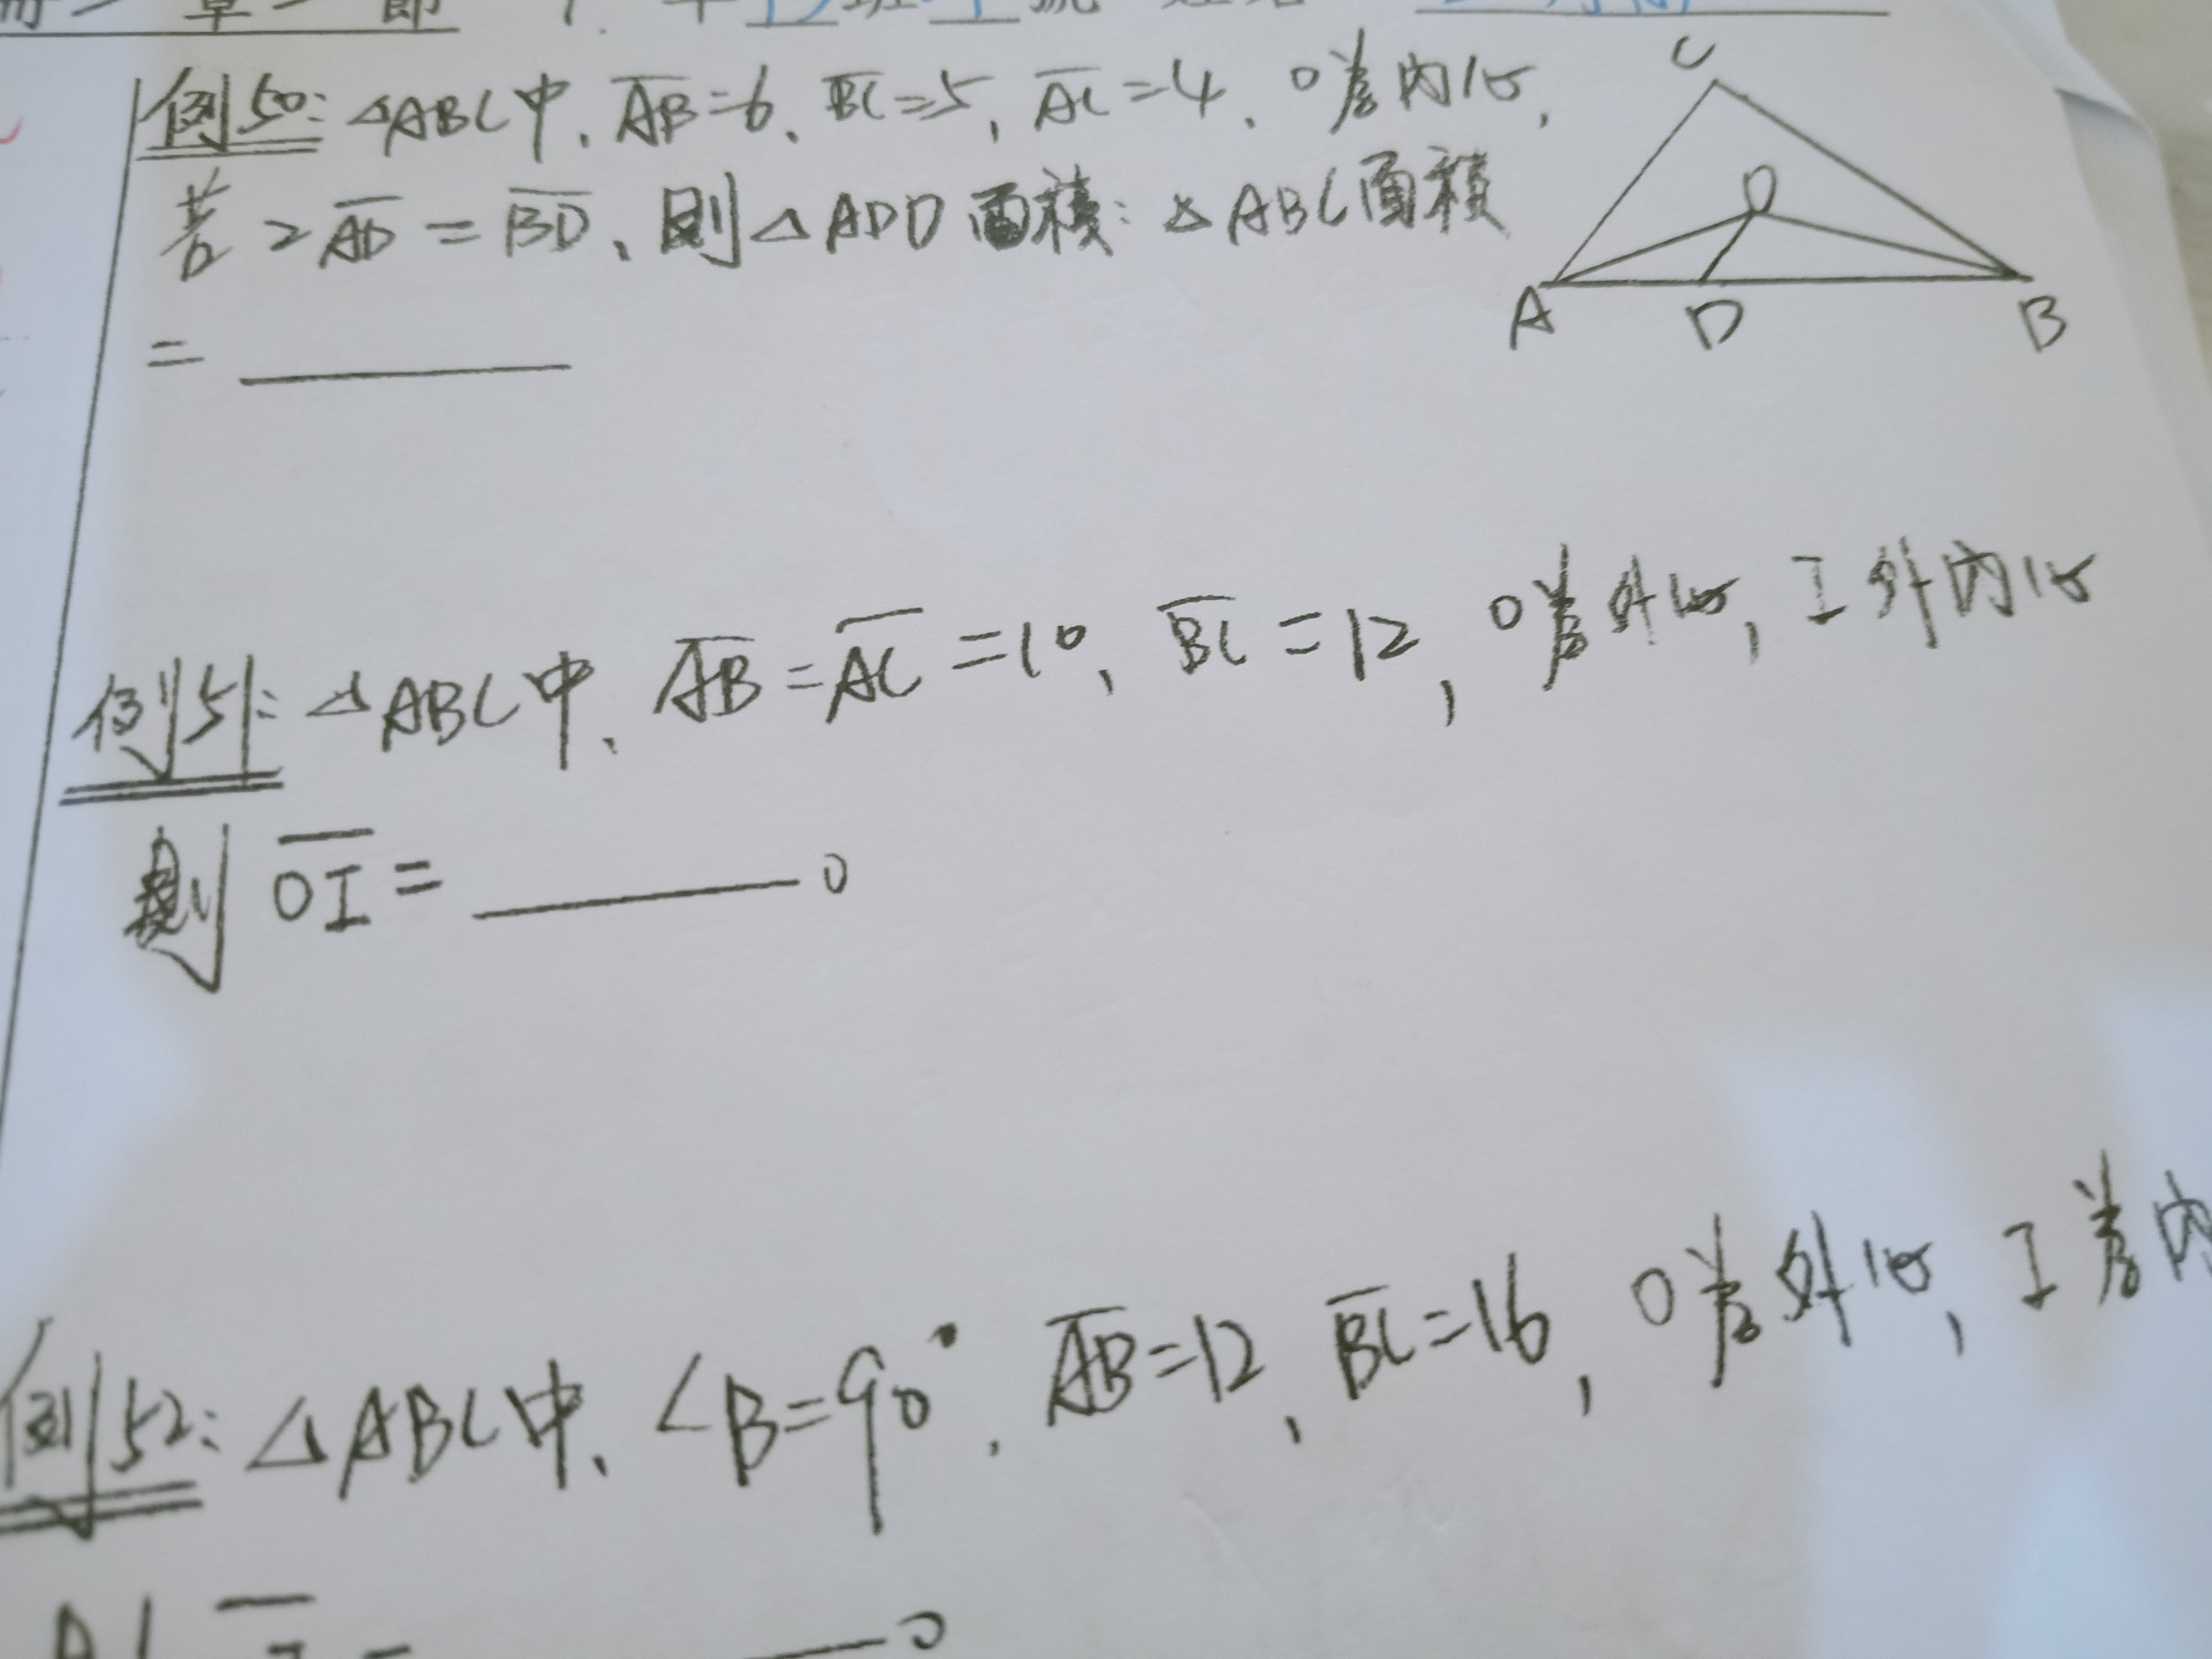 章 節 年 班 號
例50: △ABC中、AB=6、BC=5, AC=4、O為內心,
若2AD=BD、則△ADO面積:△ABC面積
= ________
C
O
A D B
例51: △ABC中、AB=AC=10, BC=12, O為外心, I為內心
則OI= ________。
例52: △ABC中、∠B=90°, AB=12, BC=16, O為外心, I為內